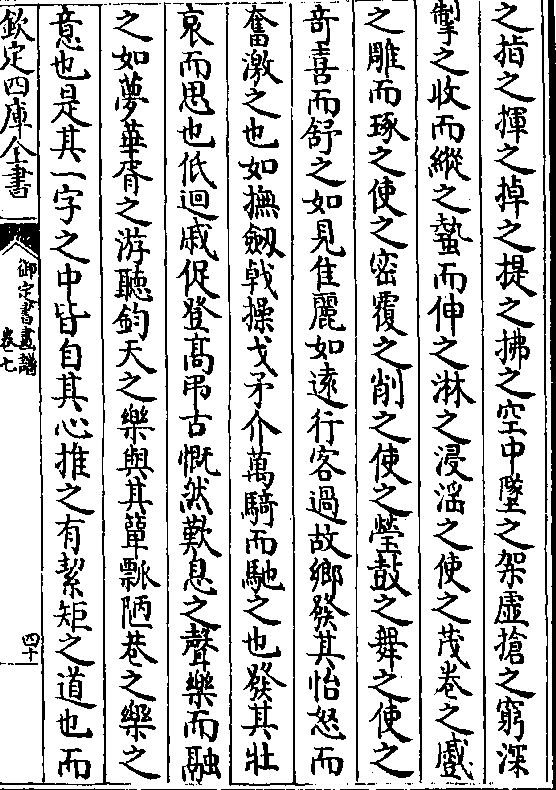 之指之揮之掉之提之拂之空中墜之架虛搶之窮深
掣之收而縱之蟄而伸之淋之浸滛之使之茂卷之蹙
之雕而琢之使之密覆之削之使之瑩鼓之舞之使之
竒喜而舒之如見佳麗如逺行客過故鄉發其怡怒而
奮激之也如撫劒戟操戈矛介萬騎而馳之也發其壯
哀而思也低迴戚促登髙弔古慨然歎息之聲樂而融
之如夢華胥之游聽鈞天之樂與其簞瓢陋巷之樂之
意也是其一字之中皆自其心推之有絜矩之道也而
欽定四庫全書
御定書畫譜
卷七
四十